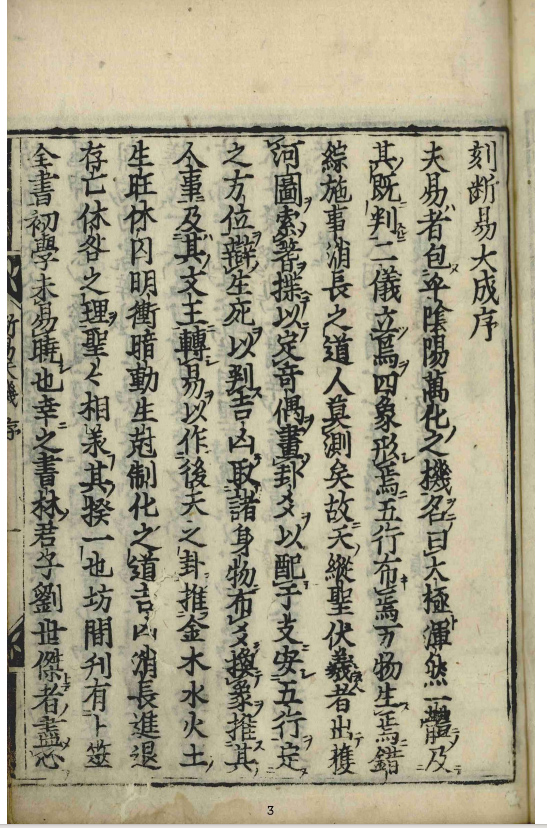 刻斷易大成序
夫易者包乎陰陽萬化之機名曰太極渾然一體及
其既判二儀立焉四象形焉五行布焉万物生焉錯
綜施事消長之道人莫測矣故天縱聖伏羲者出獲
河圖索蓍揲以定奇偶畫卦爻以配子支安五行定
之方位辯生死以判吉凶取諸身物布爻換象推其
人事及其文王轉易以作後天之卦推金木水火土
生旺休囚明衝暗動生剋制化之道吉凶消長進退
存亡休咎之理聖〻相羕其揆一也坊間刋有卜筮
全書初學未易曉也幸之書林君子劉世傑者盡心
序
3